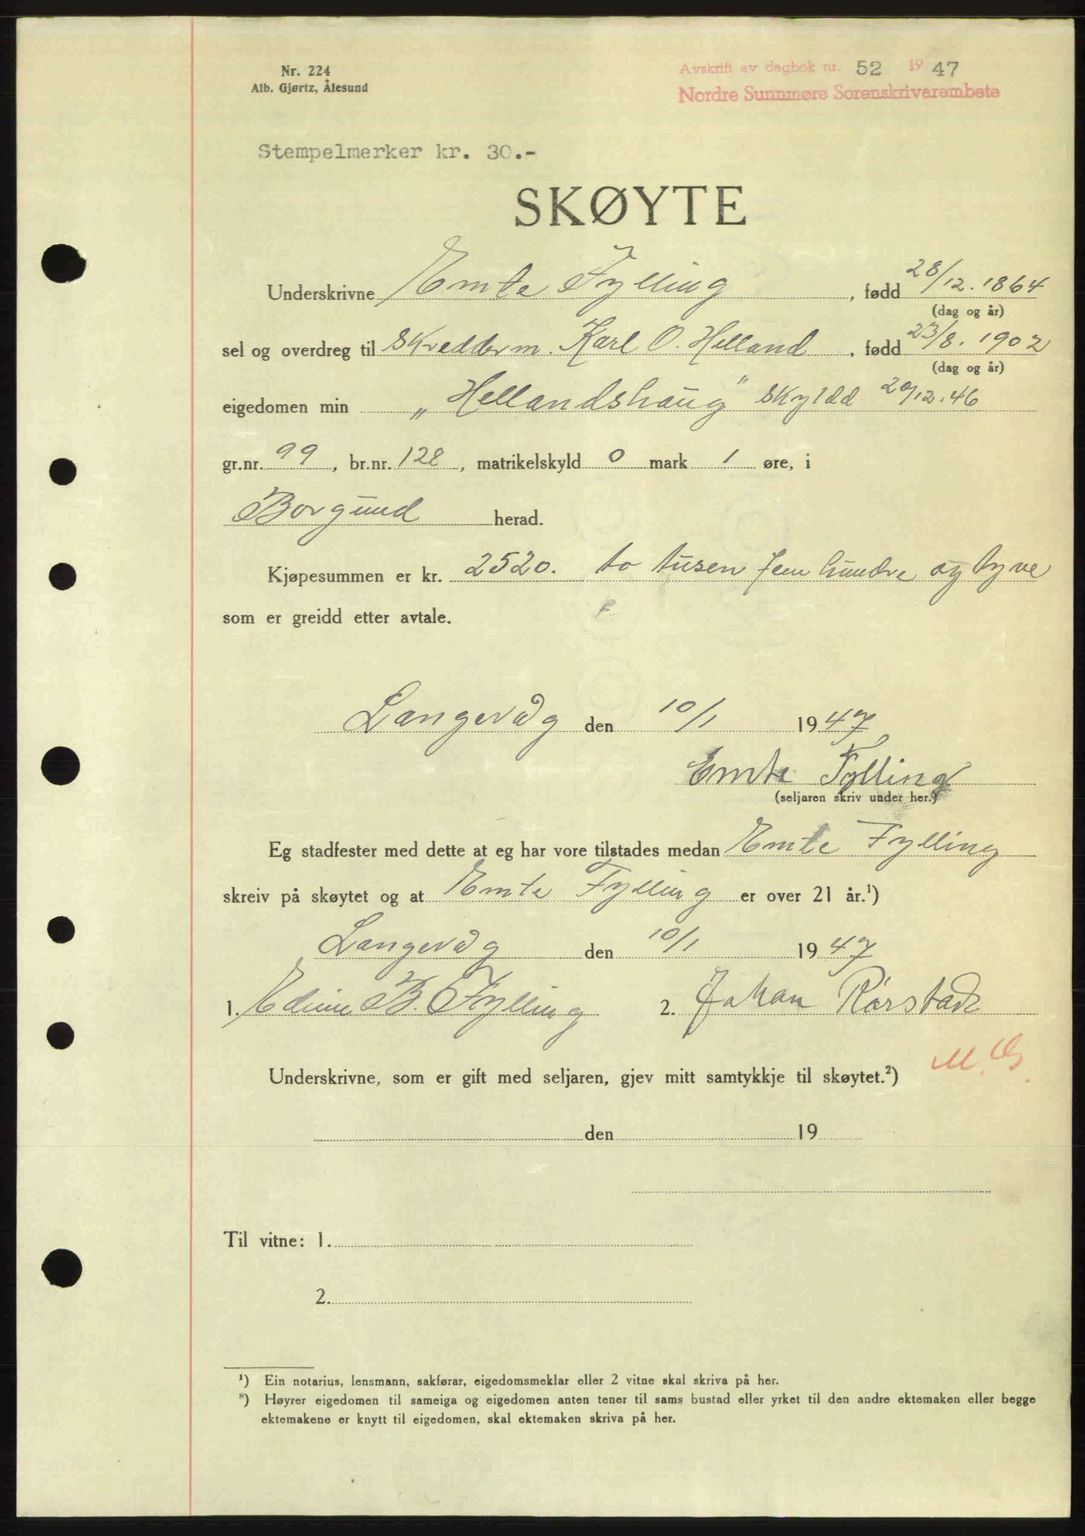 Nr. 224
Alb. Gjørtz, Ålesund
Avskrift av dagbok nr. 52 1947
Nordre Sunnmøre Sorenskrivarembete
Stempelmerker kr. 30.-
SKØYTE
Underskrivne Emte Fylling, fødd 28/12.1864
(dag og år)
sel og overdreg til Skredderm. Karl O. Helland, fødd 23/8.1902
(dag og år)
eigedomen min „Hellandshaug" Skyldd 20/12.46
gr.nr. 99, br.nr. 128, matrikelskyld 0 mark 1 øre, i
Borgund herad.
Kjøpesummen er kr. 2520. to tusen fem hundre og tyve
som er greidd etter avtale.
Langevåg den 10/1 1947
Emte Fylling
(seljaren skriv under her.)
Eg stadfester med dette at eg har vore tilstades medan Emte Fylling
skreiv på skøytet og at Emte Fylling er over 21 år.¹)
Langevåg den 10/1 1947
1. B. Fylling 2. Johan Rørstad
M. G.
Underskrivne, som er gift med seljaren, gjev mitt samtykkje til skøytet.²)
den 19
Til vitne: 1.
2.
¹) Ein notarius, lensmann, sakførar, eigedomsmeklar eller 2 vitne skal skriva på her.
²) Høyrer eigedomen til sameiga og eigedomen anten tener til sams bustad eller yrket til den andre ektemaken eller begge
ektemakene er knytt til eigedomen, skal ektemaken skriva på her.